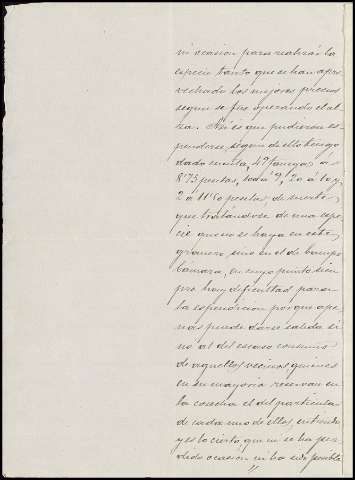 ni ocasion para realizar la
especie tanto que se han apro-
vechado los mejores precios
segun se fue operando el al-
za. Asi es que pudieron es-
penderse, segun de ello tengo
dado cuenta, 47 fanegas á
8'75 pesetas, 20 á 10 y
2 á 11'50 pesetas; de suerte
que tratándose de una espe-
cie que no se haya en este
granero, sino en el de Campo
Cámara, en cuyo punto siem-
pre hay dificultad para
la espendicion porque ape-
nas puede darse salida si
no al del escaso consumo
de aquellos vecinos quienes
en su mayoria reservan en
la cosecha el del particular
de cada uno de ellos, entiendo
y es lo cierto, que ni se ha per-
dido ocasion ni ha sido posible